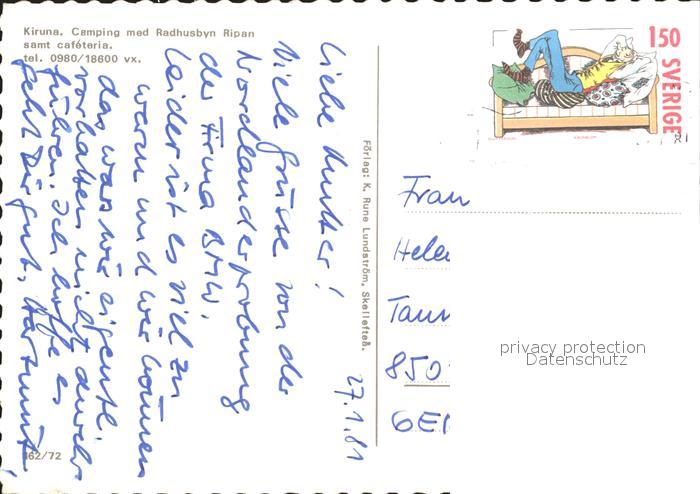 Kiruna. Camping med Radhusbyn Ripan
samt caféteria.
tel. 0980/18600 vx.
150
SVERIGE
27.1.81
Liebe Mutter!
Viele Grüsse von der
Nordlanderprobung
der Firma BMW.
Leider ist es viel zu
warm und wir können
das was wir eigentl.
vorhatten nicht durch
führen. Ich hoffe es
geht Dir gut. Hartmut
162/72
Förlag: K. Rune Lundström, Skellefteå.
Frau
Hele
Tau
850
GE
privacy protection
Datenschutz